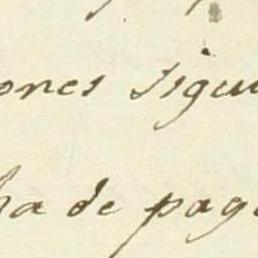 ones sigui
ha de paga